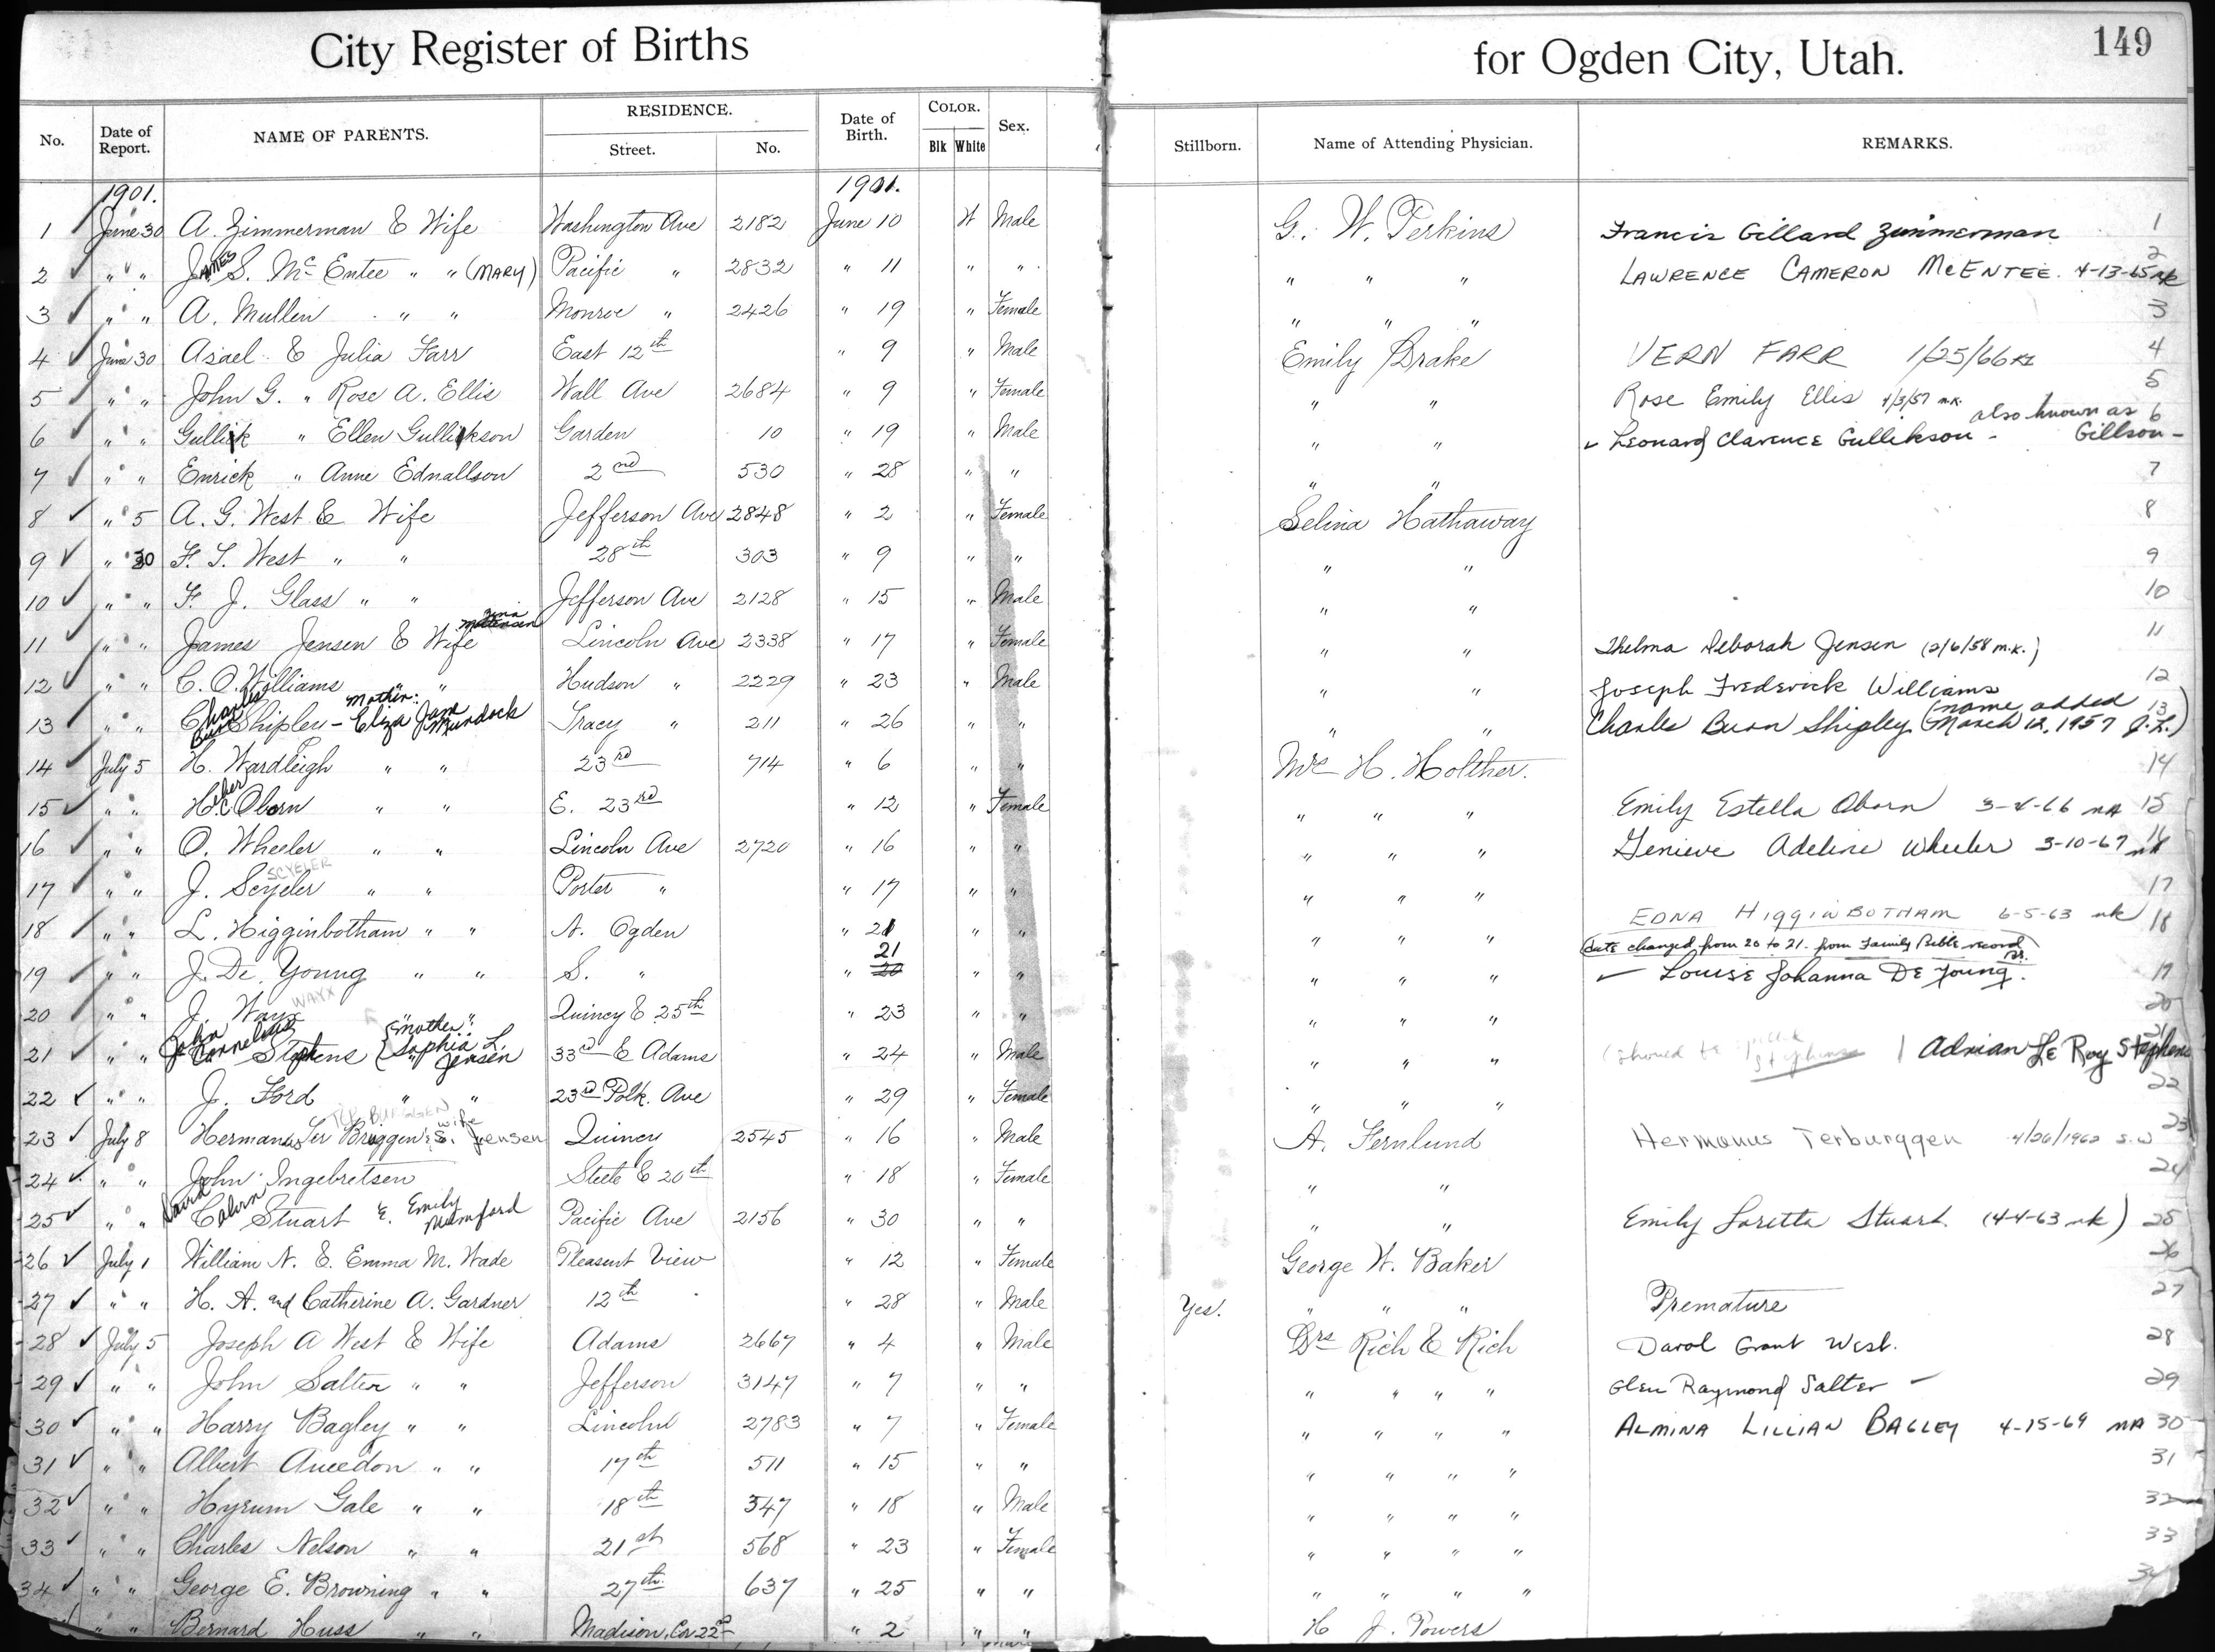 City Register of Births for Ogden City, Utah. 149
No. Date of Report. NAME OF PARENTS. RESIDENCE. Street. No. Date of Birth. COLOR. Blk White Sex. Stillborn. Name of Attending Physician. REMARKS.
1901. 1901.
1 June 30 A. Zimmerman & Wife Washington Ave 2182 June 10 W Male G. W. Perkins Francis Gillard Zimmerman 1
2 " " James S. McEntee " " (MARY) Pacific " 2832 " 11 " " " " " LAWRENCE CAMERON McENTEE. 4-13-65 mk 2
3 " " A. Mullin " " Monroe " 2426 " 19 " Female " " " 3
4 June 30 Asael & Julia Farr East 12th " 9 " Male Emily Drake VERN FARR 1/25/66 4
5 " " John G. " Rose A. Ellis Wall Ave 2684 " 9 " Female " " Rose Emily Ellis 4/3/57 m.k. 5
6 " " Gullik " Ellen Gullikson Garden 10 " 19 " Male " " Leonard Clarence Gullikson - also known as Gillson - 6
7 " " Enrick " Anne Ednallson 2nd 530 " 28 " " " " 7
8 " 5 A. G. West & Wife Jefferson Ave 2848 " 2 " Female Selina Hathaway 8
9 " 30 F. S. West " " 28th 303 " 9 " " " " 9
10 " " F. J. Glass " " Jefferson Ave 2128 " 15 " Male " " 10
11 " " James Jensen & Wife Lincoln Ave 2338 " 17 " Female " " Thelma Deborah Jensen (2/6/58 m.k.) 11
12 " " C. O. Williams " " Hudson " 2229 " 23 " Male " " Joseph Frederick Williams 12
13 " " Charles Shipley - Mother: Eliza Jane Murdock Tracy " 211 " 26 " " " " Charles Burn Shipley (name added March 12, 1957 J.L.) 13
14 July 5 H. Wardleigh " " 23rd 714 " 6 " " Mrs H. Holther. 14
15 " " Heber C. Oborn " " E. 23rd " 12 " Female " " " Emily Estella Oborn 3-4-66 15
16 " " O. Wheeler " " Lincoln Ave 2720 " 16 " " " " " Genieve Adeline Wheeler 3-10-67 16
17 " " J. Scyeler SCYELER " " Porter " " 17 " " " " " 17
18 " " L. Higginbotham " " N. Ogden " 21 " " " " " EDNA HIGGINBOTHAM 6-5-63 mk 18
19 " " J. De Young " " S. " " 20 21 " " " " " (date changed from 20 to 21. from Family Bible record) Louise Johanna De Young. 19
20 " " J. Wayx WAYX Quincy & 25th " 23 " " " " " 20
21 " " John Cornelius Stephens {Mother: Sophia L. Jensen 33rd & Adams " 24 " Male " " " (should be Stephens Adrian Le Roy Stephens 21
22 " " J. Ford " " 23rd Polk. Ave " 29 " Female " " " 22
23 July 8 Hermanus Ter Bruggen & wife S. Jensen Quincy 2545 " 16 " Male A. Fernlund Hermanus Terburggen 4/26/1962 S.W 23
24 " " John Ingebretsen Steele & 20th " 18 " Female " " 24
25 " " David Calvin Stuart & Emily Mumford Pacific Ave 2156 " 30 " " " " Emily Loretta Stuart (4-4-63 mk) 25
26 July 1 William N. & Emma M. Wade Pleasent View " 12 " Female George W. Baker 26
27 " " H. A. and Catherine A. Gardner 12th " 28 " Male Yes. " " " Premature 27
28 July 5 Joseph A West & Wife Adams 2667 " 4 " Male Drs Rich & Rich Darol Grant West. 28
29 " " John Salter " " Jefferson 3147 " 7 " " " " " " Glen Raymond Salter - 29
30 " " Harry Bagley " " Lincoln 2783 " 7 " Female " " " " ALMINA LILLIAN BAGLEY 4-15-69 30
31 " " Albert " " 17th 511 " 15 " " " " " " 31
32 " " Hyrum Gale " " 18th 547 " 18 " Male " " " " 32
33 " " Charles Nelson " " 21st 568 " 23 " Female " " " " 33
34 " " George E. Browning " " 27th 637 " 25 " " " " " " 34
" " Bernard Huss " " Madison, Cor 22nd " 2 " " H J. Powers